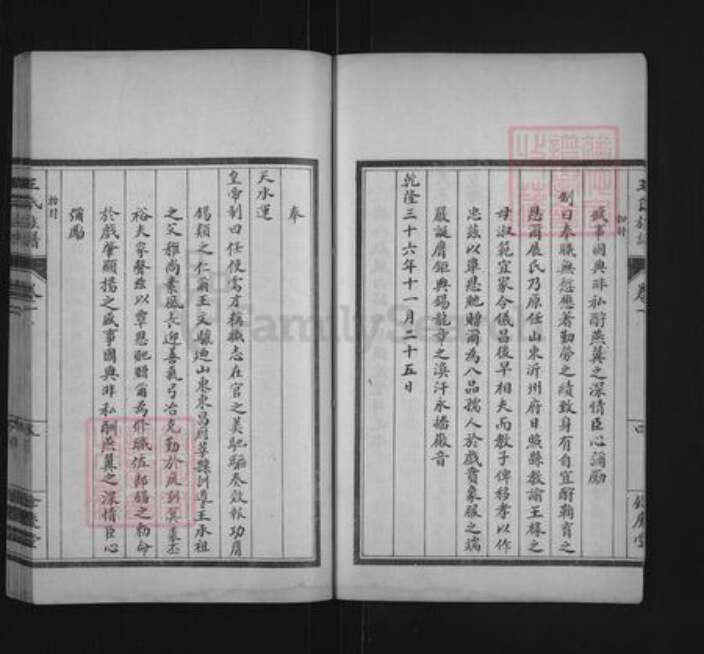 王氏族譜
卷一
四
盛事國典非私酧燕翼之深情臣心彌勵
勅封
制曰奉職無愆懋著勤勞之績致身有自宜酧鞠育之
恩爾展氏乃原任山東沂州府日照縣教諭王檖之
母淑範宜家令儀昌後早相夫而教子俾移孝以作
忠茲以覃恩貤贈爾為八品孺人於戲賁象服之端
嚴誕膺鉅典錫龍章之渙汗永播徽音
乾隆三十六年十一月二十五日
奉
天承運
皇帝制曰任使需才稱職志在官之美馳驅奏效報功膺
錫類之仁爾王文驤迺山東東昌府莘縣訓導王承祖
之父雅尚素風長迎善氣弓冶克勤於庭訓箕裘丕
裕夫家聲茲以覃恩貤贈爾為修職佐郎錫之勅命
於戲肇顯揚之盛事國典非私酬燕翼之深情臣心
彌勵
勅封
王氏族譜
卷一